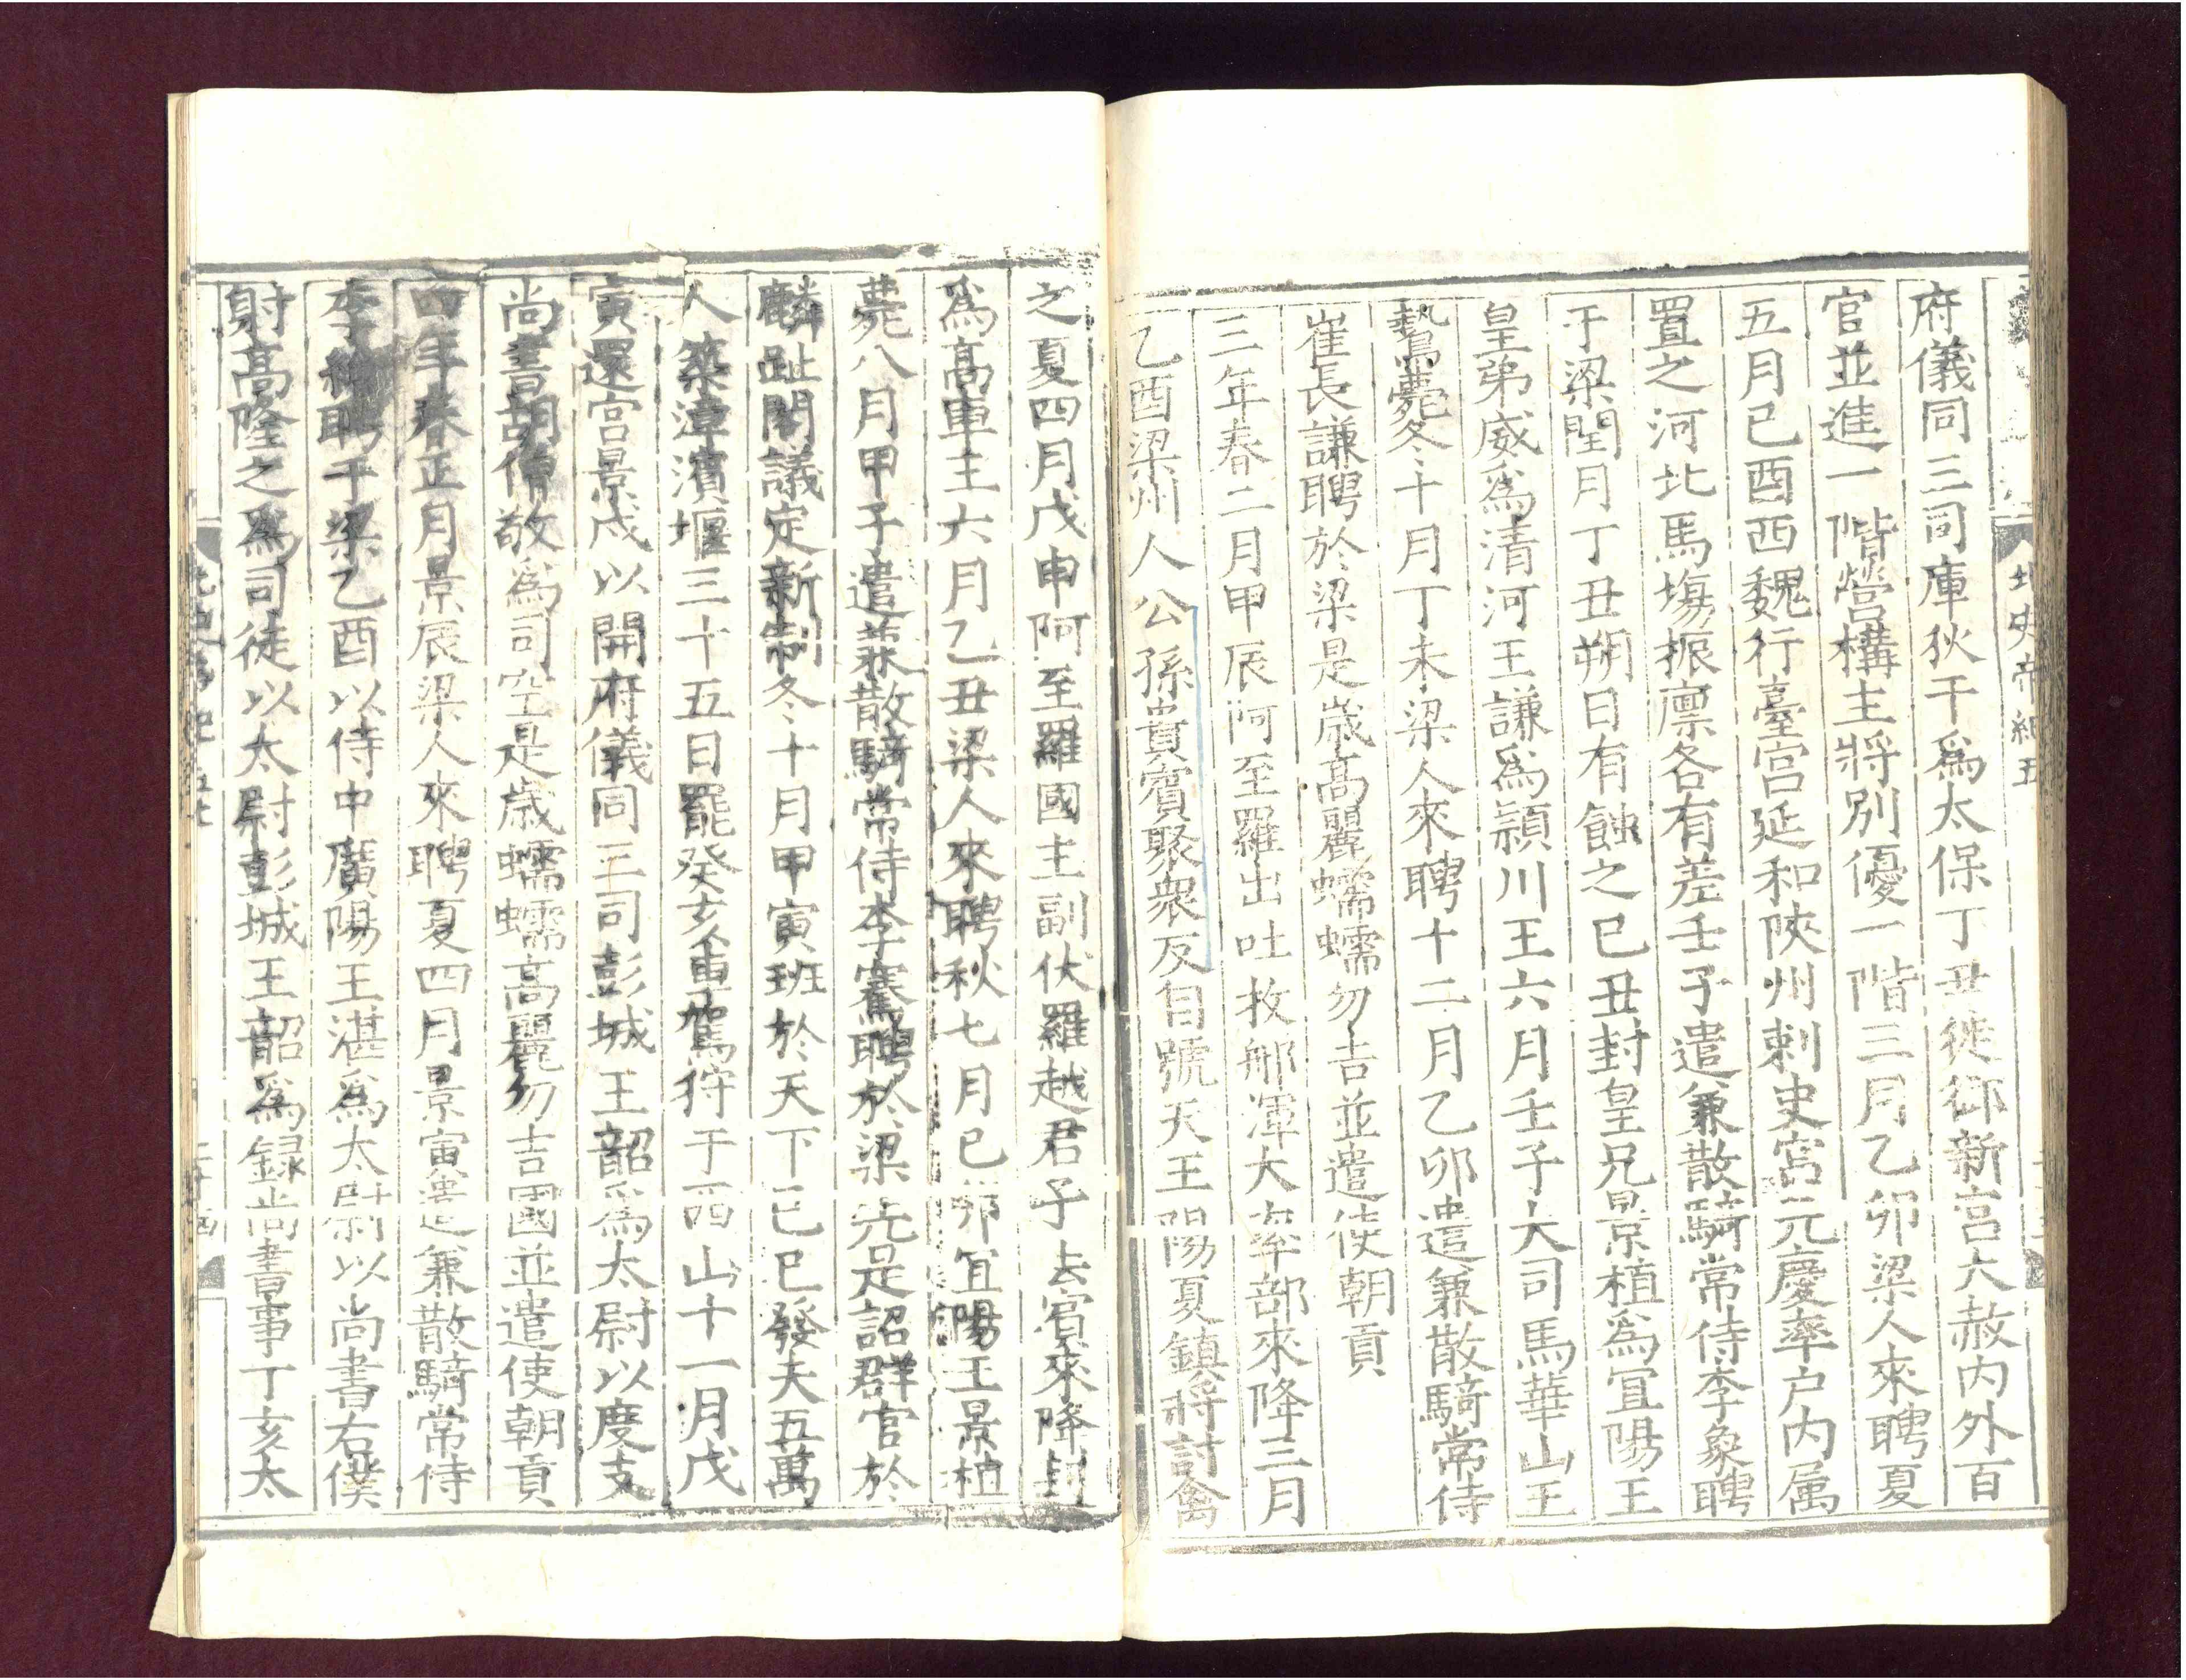 北史帝紀五
府儀同三司庫狄干爲太保丁丑徙御新宫大赦内外百
官並進一階營構主將别優一階三月乙卯梁人來聘夏
五月己酉西魏行臺宫延和陜州刺史宫元慶率户内属
置之河北馬塲振廪各有差壬子遣兼散騎常侍李象聘
于梁閏月丁丑朔日有蝕之己丑封皇兄景植爲宜陽王
皇弟威爲清河王謙爲頴川王六月壬子大司馬華山王
鷙薨冬十月丁未梁人來聘十二月乙卯遣兼散騎常侍
崔長謙聘於梁是歳髙麗蠕蠕勿吉並遣使朝貢
三年春二月甲辰阿至羅出吐拔䣕渾大率部來降三月
乙酉梁州人公孫貴賔聚衆反自號天王陽夏鎮將討禽
之夏四月戊申阿至羅國主副伏羅越君子去賔來降封
爲髙車主六月乙丑梁人來聘秋七月己卯宜陽王景植
薨八月甲子遣兼散騎常侍李騫聘於梁先是詔群官於
麟趾閣議定新制冬十月甲寅班於天下己巳發夫五萬
人築漳濱堰三十五日罷癸亥車駕狩于西山十一月戊
寅還宫景戌以開府儀同三司彭城王韶爲太尉以度支
尚書胡僧敬爲司空是歳蠕蠕髙麗勿吉國並遣使朝貢
四年春正月景辰梁人來聘夏四月景寅遣兼散騎常侍
李繪聘于梁乙酉以侍中廣陽王湛爲太尉以尚書右僕
射髙隆之爲司徒以太尉彭城王韶爲録尚書事丁亥太